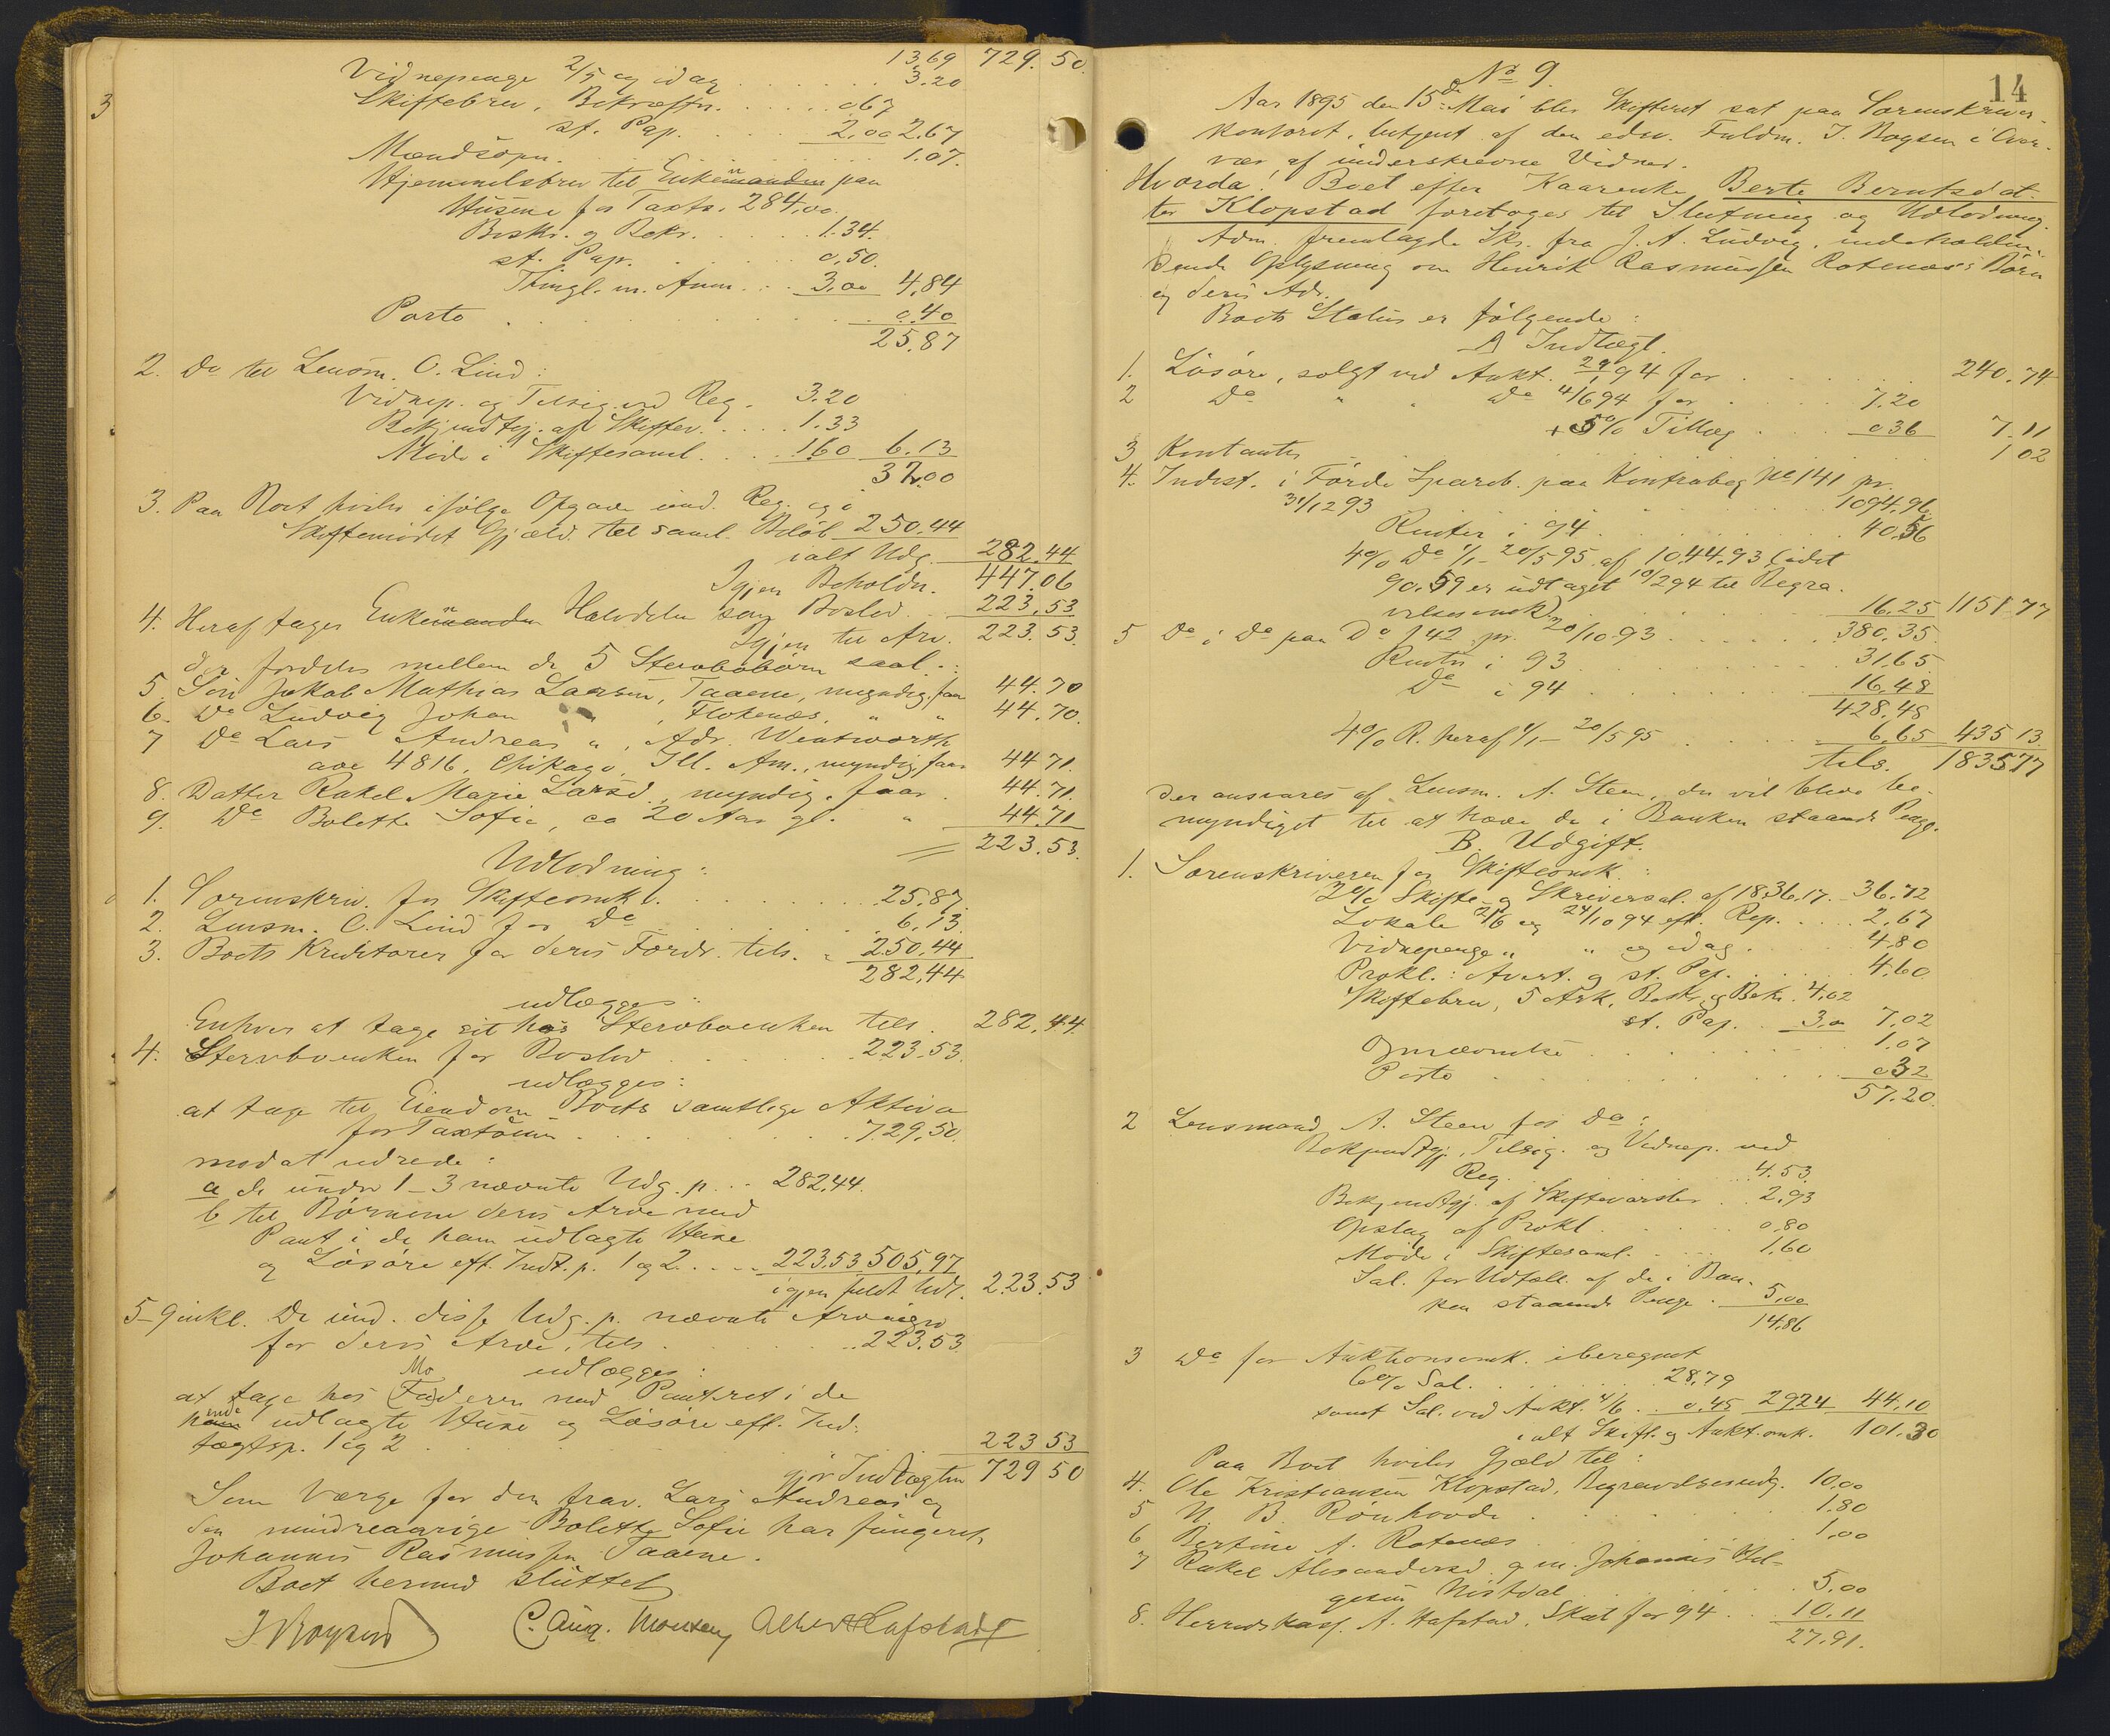 13,69 729.50.
Vidnepenge 2/5 og idag 3.20
3 Skiftebrev, Bekræftn. 0.67
st. Pap. 2,00 2.67
Mændsopn. 1.07.
Hjemmelsbrev til Enkemanden paa
Husene for Taxts. 284,00.
Beskr. og Bekr. 1.34.
st. Papr. 0.50.
Thingl. m. Anm. 3,00 4,84
Porto 0.40
25.87
2. Do til Lensm. O. Lind:
Vidnep. og Tilsig. ved Reg. 3.20
Bekjendtgj. af Skiftev. 1.33
Møde i Skiftesaml. 1.60 6.13
32.00
3. Paa Boet hviler ifølge Opgave und. Reg. og i
Skiftemødet Gjæld til saml. Beløb 250.44
ialt Udg. 282.44
Igjen Beholdn. 447.06
4. Heraf tager Enkemanden Halvdelen som Boslod 223.53
Igjen til Arv. 223.53.
der fordeles mellem de 5 Stervbobørn saal.:
5 Søn Jakob Mathias Larsen, Taaene, myndig, faar 44.70
6. Do Ludvig Johan " , Flokenæs, " " 44.70.
7 Do Lars Andreas " , Adr. Wentworth
ave 4816, Chikago, Ill. Am., myndig, faar 44 71.
8. Datter Rakel Marie Larsd., myndig, faar 44.71.
9. Do Bolette Sofie, ca 20 Aar gl. " 44.71
223.53.
Udlodning:
1. Sorenskriv. for Skifteomk. 25.87.
2. Lensm. O. Lind for Do 6,13.
3. Boets Kreditorer for deres Fordr. tils. 250.44
282,44
udlægges:
Enhver at tage sit hos Stervboenken tils. 282,44.
4. Stervboenken for Boslod 223.53.
udlægges:
at tage til Eiendom Boets samtlige Aktiva
for Taxtsum 729,50.
mod at udrede:
a de under 1-3 nævnte Udg. p. 282.44.
b til Børnene deres Arv med
Pant i de ham udlagte Huse
og Løsøre eft. Indt. p. 1 og 2. 223.53 505,97
igjen fuldt Udl. 223.53
5-9 inkl. De und. disse Udg. p. nævnte Arvinger
for deres Arv, tils. 223.53
Mo udlægges:
at tage hos (Fa)deren med Panteret i de
ham ende udlagte Huse og Løsøre eft. Ind-
tægtsp. 1 og 2 223 53
gjør Indtægten 729 50
Som Værge for den frav. Lars Andreas og
den mindreaarige Bolette Sofie har fungeret
Johannes Rasmussen Taaene.
Boet hermed sluttet
J Boysen C. Aug. Monsen Albert Hafstad
14
No 9.
Aar 1895 den 15de Mai blev Skifteret sat paa Sorenskriver-
kontoret, betjent af den edsv. Fuldm. J. Boysen i Over-
vær af underskrevne Vidner.
Hvorda: Boet efter Kaarenke Berte Berntsdat-
ter Klopstad foretoges til Slutning og Udlodning.
Adm. fremlagde Skr. fra J. A. Ludvig, indeholden-
dende Oplysning om Henrik Rasmussen Rotenæs's Børn
og deres Adr.
Boets Status er følgende:
A Indtægt.
1. Løsøre, solgt ved Aukt. 29/1 94 for 240.74
2 Do " Do 4/6 94 for 7.20
+ 5% Tillæg 0 36 7.11
3 Kontanter 1 02
4. Indest. i Førde Spareb. paa Kontrabog No 141 pr.
31/12 93 1094,96
Renter i 94 40.56
4% Do 1/1 - 20/5 95 af 1044.93 (idet
90.59 er udtaget 10/2 94 til Begra-
velsesomk) 16.25 1151.77
5 Do i Do paa Do 142 pr. 20/10 93 380.35
Renter i 93 31.65
Do i 94 16.48
428.48
4% R. heraf 1/1 - 20/5 95 6.65 435 13
tils. 1835.77
der ansvares af Lensm. A. Steen, der vil blive be-
myndiget til at hæve de i Banken staaende Penge.
B. Udgift.
1. Sorenskriveren for Skifteomk.:
2% Skifte- og Skriversal. af 1836.17. 36.72
Lokale 2/6 og 24/10 94 eft. Rep. 2.67
Vidnepenge " " og idag 4.80
Prokl.: Avert. og st. Pap. 4.60
Skiftebrev, 5 Ark, Besk. og Bekr. 4.02
st. Pap. 3.00 7.02
1.07
Porto 0 32
57.20.
2 Lensmand A. Steen for Do:
Bekjendtgj., Tilsig. og Vidnep. ved
Reg. 4.53.
Bekjendtgj. af Skiftevarsler 2.93
Opslag af Prokl. 0.80
Møde i Skiftesaml. 1.60
Sal. for Udfæll. af de i Ban-
ken staaende Penge 5,00
14.86
3 Do for Auktionsomk. iberegnet
6% Sal. 28.79
samt Sal. ved Aukt. 4/6 0.45 29.24 44.10
ialt Skift. og Aukt. omk. 101.30
Paa Boet hviler Gjæld til:
4. Ole Kristiansen Klopstad, Begravelsesudg. 10.00
5 N. B. Rönhovde 1.80
6 Bertine A. Rotenæs 1.00
7 Rakel Alexandersd. g. m. Johannes Hel-
gesen Nistdal 5.00
8. Herredskass. A. Hafstad, Skat for 94 10.11
27.91.